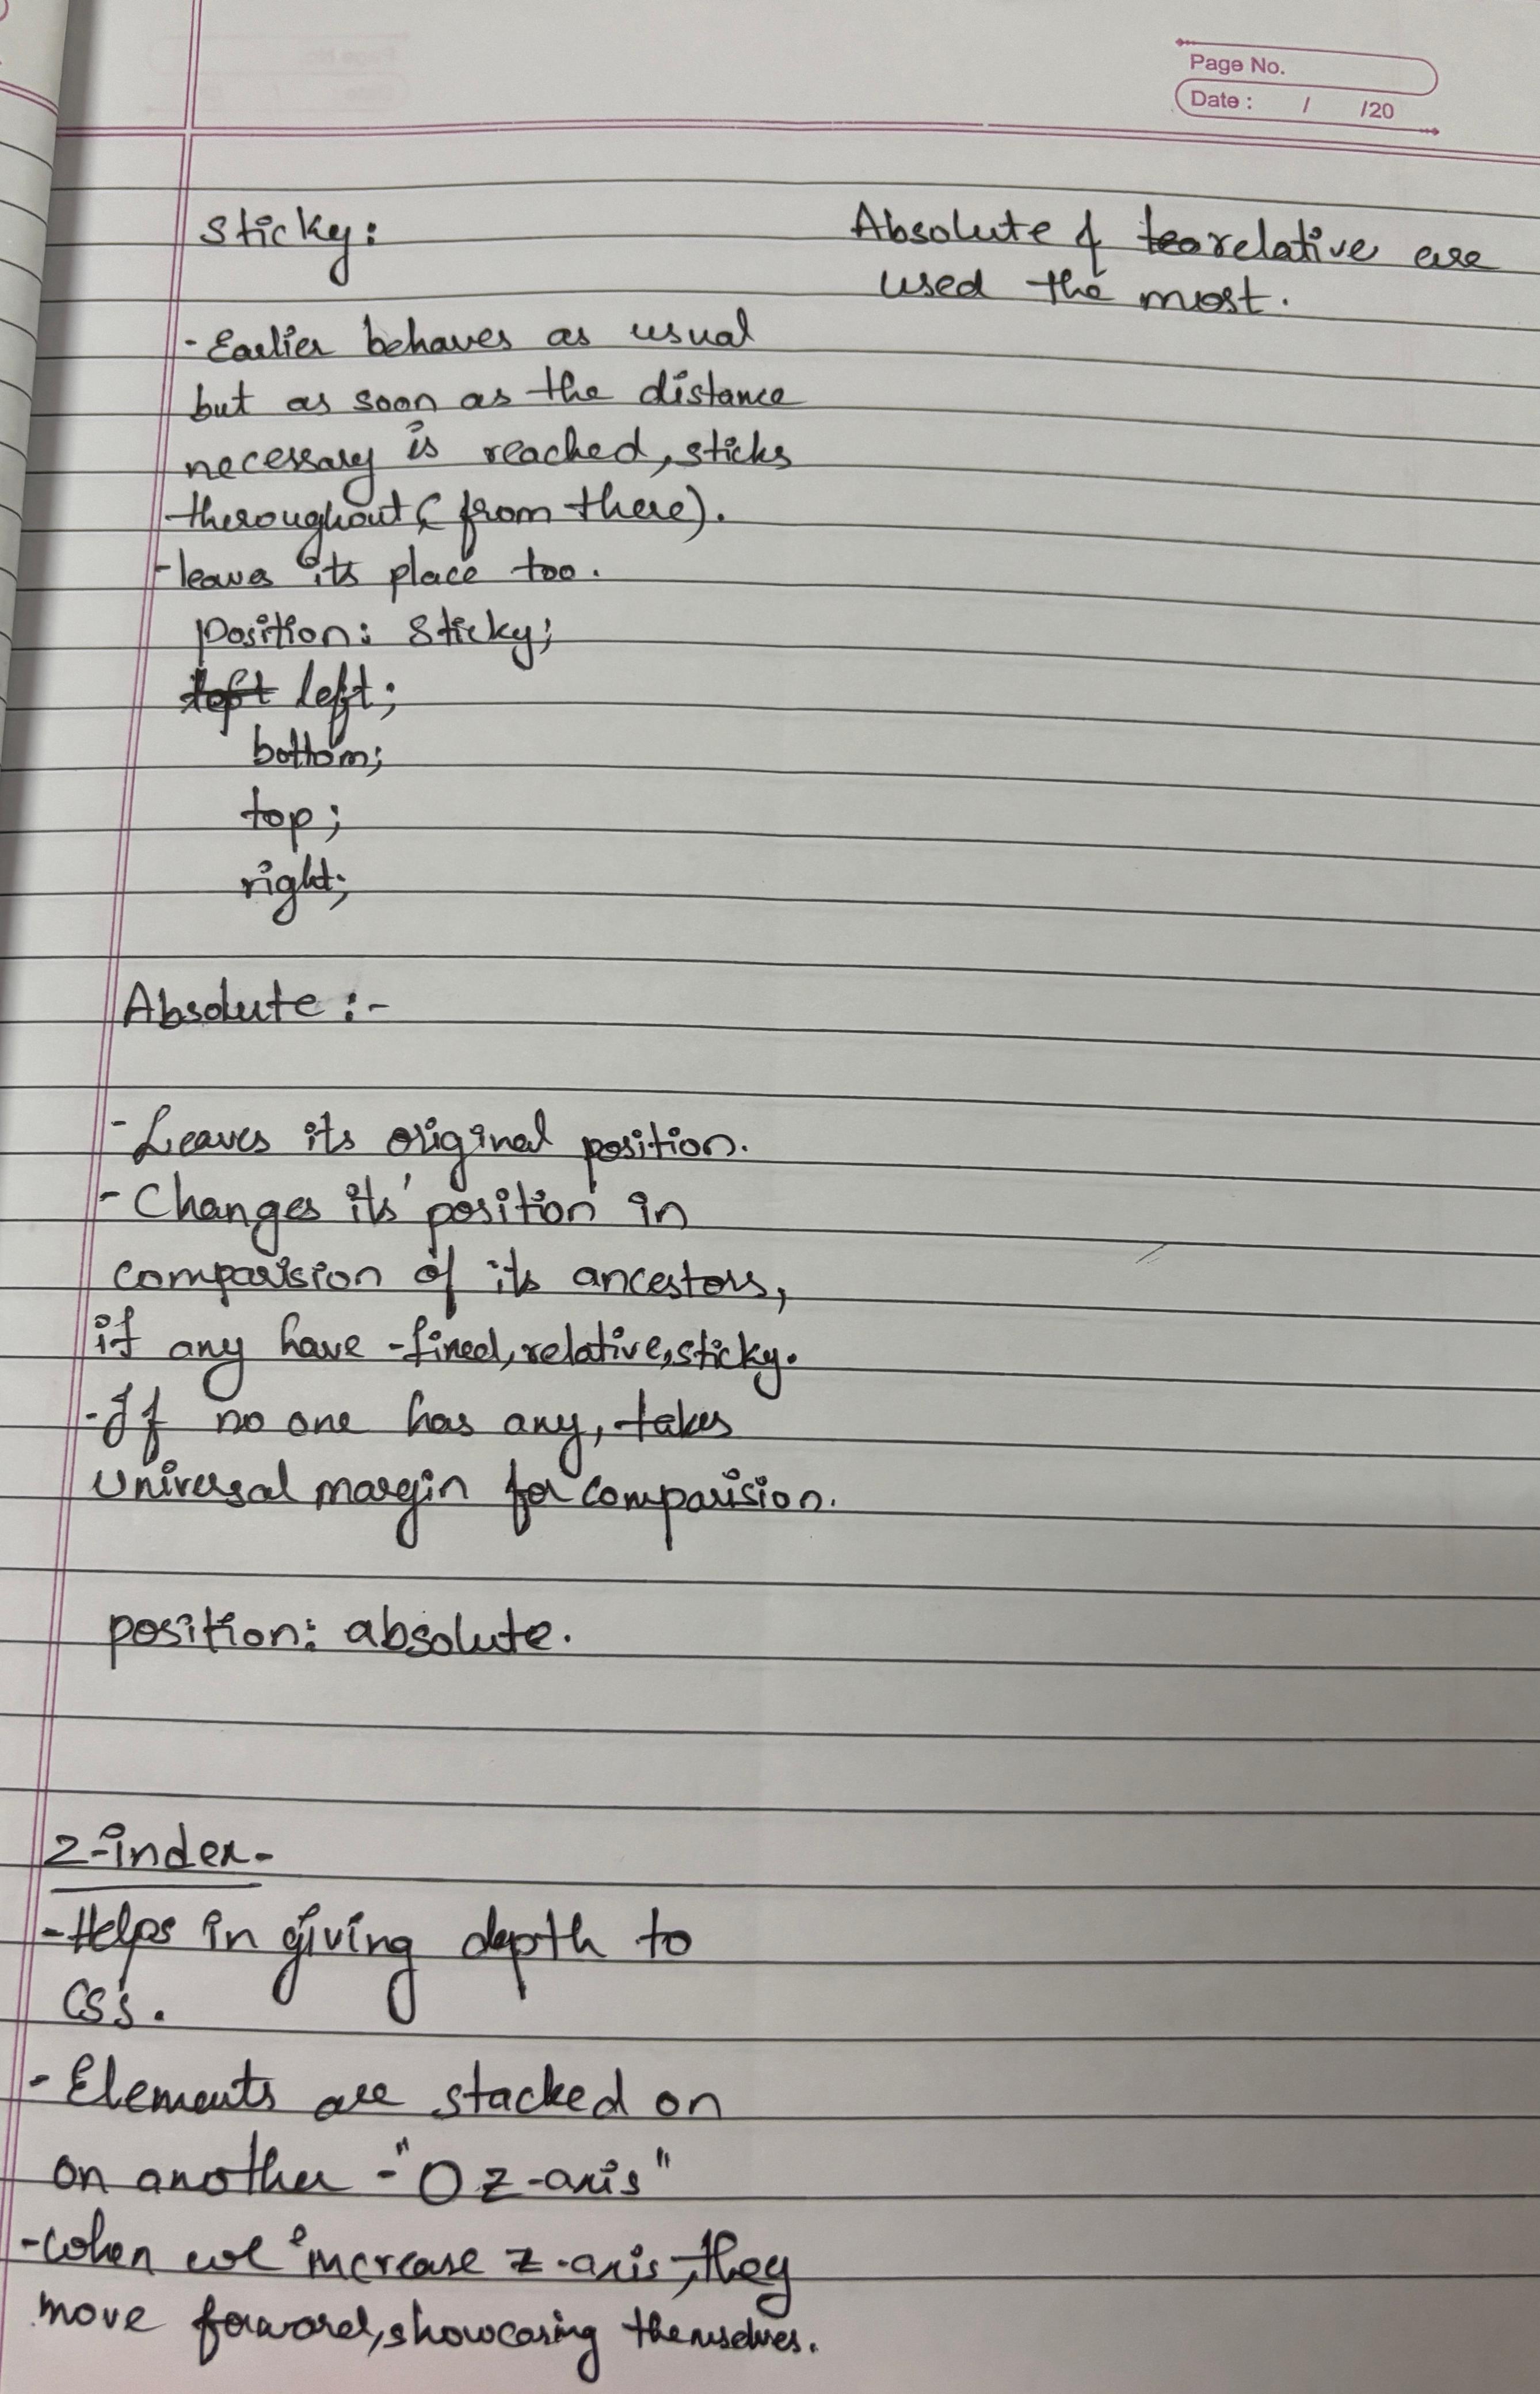 Page No.
Date : / /20
Sticky:
Absolute & relative are
used the most.
- Earlier behaves as usual
but as soon as the distance
necessary is reached, sticks
throughout (from there).
- leaves its place too.
position: sticky;
left;
bottom;
top;
right;
Absolute :-
- Leaves its original position.
- Changes its position in
comparision of its ancestors,
if any have - fixed, relative, sticky.
- If no one has any, takes
Universal margin for comparision.
position: absolute.
z-index-
- Helps in giving depth to
CSS.
- Elements are stacked on
on another - "0 z-axis"
- When we increase z-axis, they
move forward, showcasing themselves.